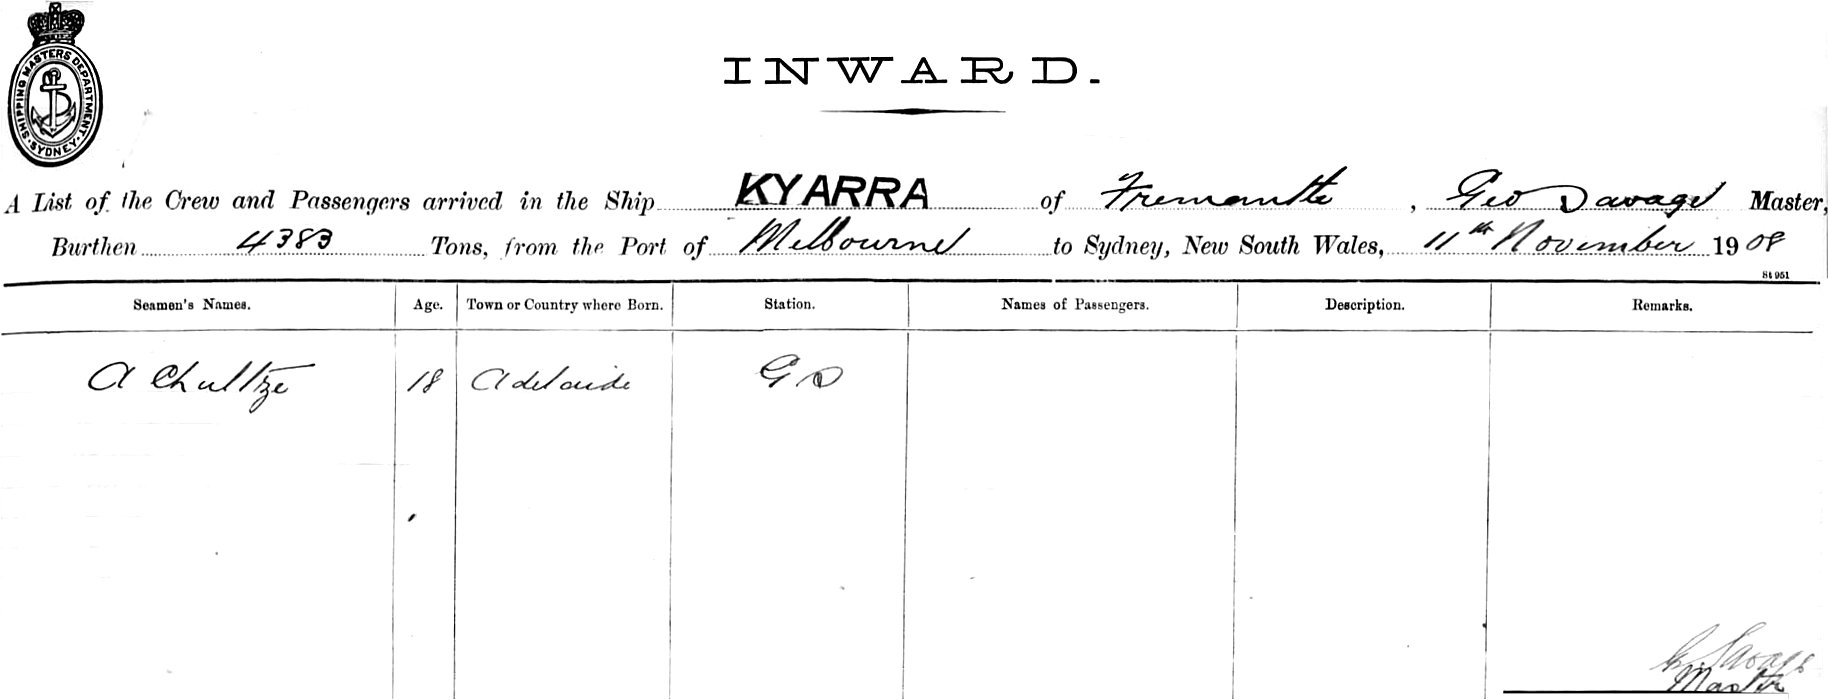 SHIPPING MASTERS DEPARTMENT. SYDNEY.
INWARD.
A List of the Crew and Passengers arrived in the Ship KYARRA of Fremantle, Geo Savage Master,
Burthen 4383 Tons, from the Port of Melbourne to Sydney, New South Wales, 11th November 1908
St 951
Seamen's Names. Age. Town or Country where Born. Station. Names of Passengers. Description. Remarks.
A Chultze 18 Adelaide G S
G. Savage
Master